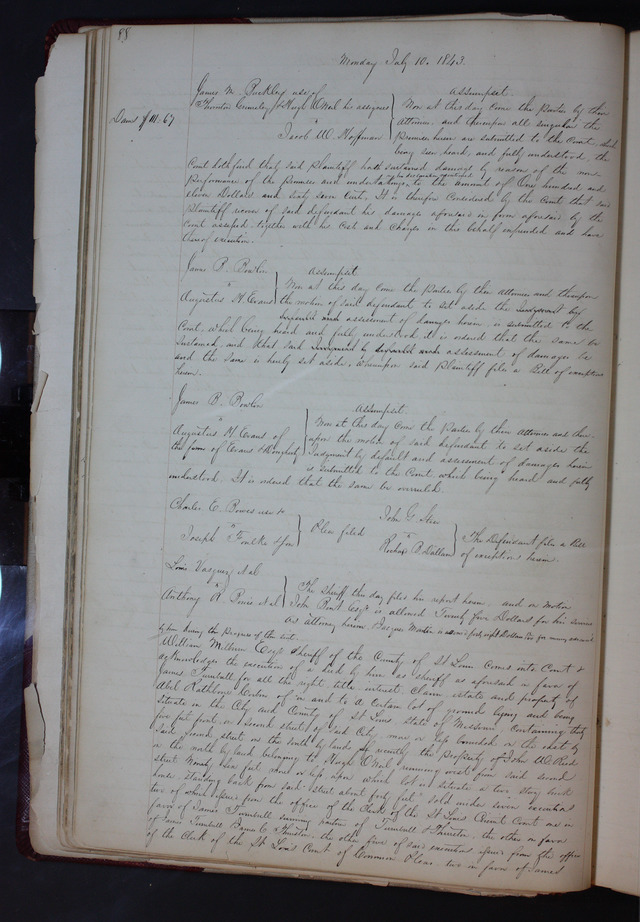 88
Monday July 10. 1843.
James M. Buckley use of
Thornton Grimsley & Hugh O'Neal his assignees
vs
Jacob W. Hoffman
Dams $111.67
Assumpsit.
Now at this day Come the Parties by their
attornies, and thereupon all singular the
Premises herein are submitted to the Court, which
being seen, heard, and fully understood, the
Court doth find that said plaintiff hath sustained damage by reason of the non-
Performance of the Promises and undertakings to the amount of One hundred and
eleven Dollars and sixty seven Cents, It is therefore Considered by the Court that said
Plaintiff recover of said defendant his damages aforesaid in form aforesaid by the
Court assessed together with his Costs and Charges in this behalf expended and have
thereof execution.
James B. Bowlin
vs
Augustus H. Evans
Assumpsit.
Now at this day Come the Parties by their attornies and thereupon
the motion of said defendant to set aside the Judgment by
default and assessment of damages herein is submitted to the
Court, which being heard and fully understood it is ordered that the same be
sustained, and that said Judgment by default and assessment of damages be
and the same is hereby set aside, whereupon said Plaintiff files a Bill of exceptions
herein.
James B. Bowlin
vs
Augustus H. Evans of
the firm of Evans &
Assumpsit.
Now at this day Come the Parties by their Attornies and there-
upon the motion of said defendant to set aside the
Judgment by default and assessment of damages herein
is submitted to the Court which being heard and fully
understood. It is ordered that the same be overruled.
Charles E. Bowers use &
vs
Joseph Foulke & Son
Pleas filed
John G.
vs
Richd P. Dallam
The Defendant files a Bill
of exceptions herein.
Louis Vasquez et al
vs
Anthony R. et al
The Sheriff this day files his report herein, and on motion
John Bent Esqr. is allowed Twenty five Dollars for his services
as attorney herein. Dollars for
by him during the Progress of the suit.
William Milburn Esqr. Sheriff of the County of St Louis Comes into Court &
acknowledges the execution of a deed by him as sheriff as aforesaid in favor of
James Turnbull for all the right title interest Claim estate and property of
Abel Rathbone in and to a Certain lot of ground lying and being
situate in the City and County of St Louis State of Missouri Containing thirty
five feet front on second street of said City, more or less bounded on the east by
said second street on the South by lands recently the property of John W. Reel
on the north by lands belonging to Hugh O'Neal running west from said second
street feet more or less upon which lot is situate a two story brick
house standing back from said street about forty feet, sold under seven executions
two of which issued from the office of the Clerk of the St Louis Circuit Court one in
favor of James Turnbull surviving partner of Turnbull & the other in favor
of James Turnbull the other five of said executions issued from the office
of the Clerk of the St Louis Court of Common Pleas two in favor of James